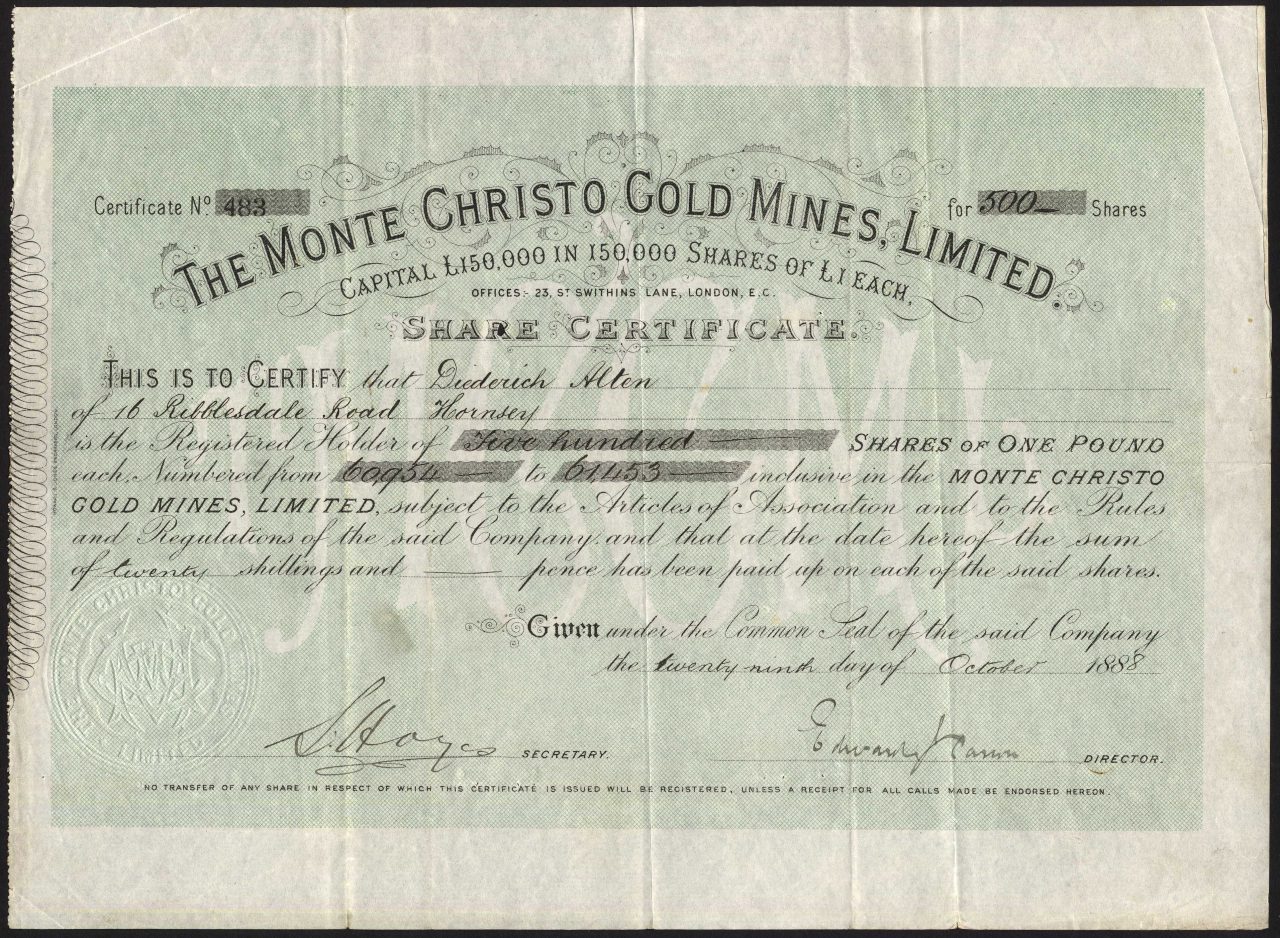 Certificate No. 483
for 500— Shares
THE MONTE CHRISTO GOLD MINES, LIMITED.
CAPITAL £150,000 IN 150,000 SHARES OF £1 EACH,
OFFICES:- 23, ST SWITHINS LANE, LONDON, E.C.
SHARE CERTIFICATE.
THIS IS TO CERTIFY that Diederich Alten
of 16 Ribblesdale Road Hornsey
is the Registered Holder of Five hundred — SHARES OF ONE POUND
each, Numbered from 60,954 — to 61,453 — inclusive in the MONTE CHRISTO
GOLD MINES, LIMITED, subject to the Articles of Association and to the Rules
and Regulations of the said Company and that at the date hereof the sum
of twenty shillings and — pence has been paid up on each of the said shares.
Given under the Common Seal of the said Company
the twenty-ninth day of October 1888
SECRETARY.
Edward DIRECTOR.
NO TRANSFER OF ANY SHARE IN RESPECT OF WHICH THIS CERTIFICATE IS ISSUED WILL BE REGISTERED, UNLESS A RECEIPT FOR ALL CALLS MADE BE ENDORSED HEREON.
THE MONTE CHRISTO GOLD MINES LIMITED